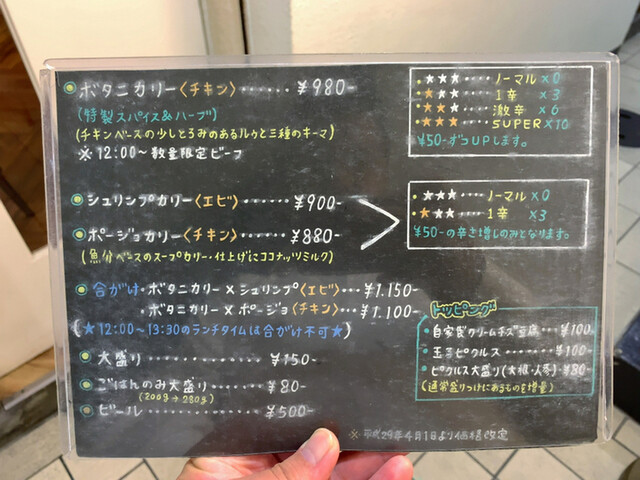 ボタニカリー〈チキン〉……¥980-
(特製スパイス&ハーブ)
(チキンベースの少しとろみのあるルゥと三種のキーマ)
※12:00〜数量限定ビーフ
シュリンプカリー〈エビ〉……¥900-
ポージョカリー〈チキン〉……¥880-
(魚介ベースのスープカリー・仕上げにココナッツミルク)
合がけ・ボタニカリー×シュリンプ〈エビ〉…¥1.150-
・ボタニカリー×ポージョ〈チキン〉…¥1.100-
(★12:00〜13:30のランチタイムは合がけ不可★)
大盛り……………¥150-
ごはんのみ大盛り………¥80-
(200g→280g)
ビール……………¥500-
★★★…ノーマル×0
★★★…1辛×3
★★★…激辛×6
★★★…SUPER×10
¥50-ずつUPします。
★★★…ノーマル×0
★★★…1辛×3
¥50-の辛さ増しのみとなります。
トッピング
・自家製クリームチーズ豆腐…¥100-
・玉子ピクルス………¥100-
・ピクルス大盛り(大根・人参)…¥80-
(通常盛りつけにあるものを増量)
※平成29年4月1日より価格改定